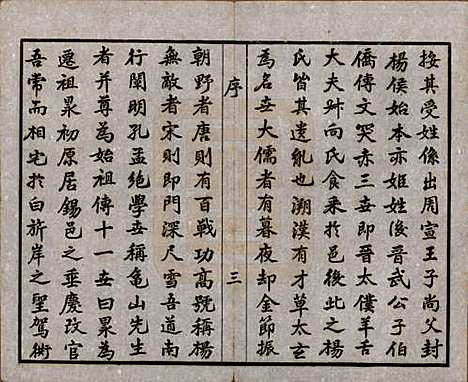 按其受姓係出周宣王子尚父封
楊侯始本亦姬姓後晉武公子伯
僑傳文突赤三世即晉太僕羊舌
大夫時向氏食采於邑後此之楊
氏皆其遺亂也溯漢有才草太玄
為名世大儒者有暮夜却金節振
序
三
朝野者唐則有百戰功高號稱楊
無敵者宋則即門深尺雪吾道南
行闡明孔孟絕學世稱龜山先生
者并尊為始祖傳十一世曰杲為
遷祖杲初原居錫邑之垂慶改官
吾常而相宅於白旂岸之墅駕衖